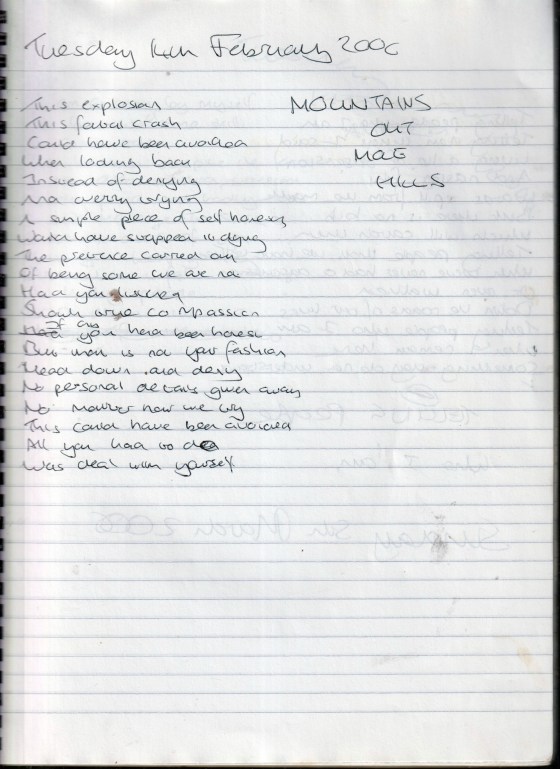 Tuesday 14th February 2006
This explosion
This fatal crash
Could have been avoided
When looking back
Instead of denying
And every crying
A simple piece of self honesty
Would have stopped it dying
The pretence carried on
Of being some we are not
Had you
Shown some compassion
If only
you have been honest
But that is not your fashion
Head down and deny
No personal details given away
No matter how we try
This could have been avoided
All you had to do
Was deal with yourself
MOUNTAINS
OUT
MOLE
HILLS